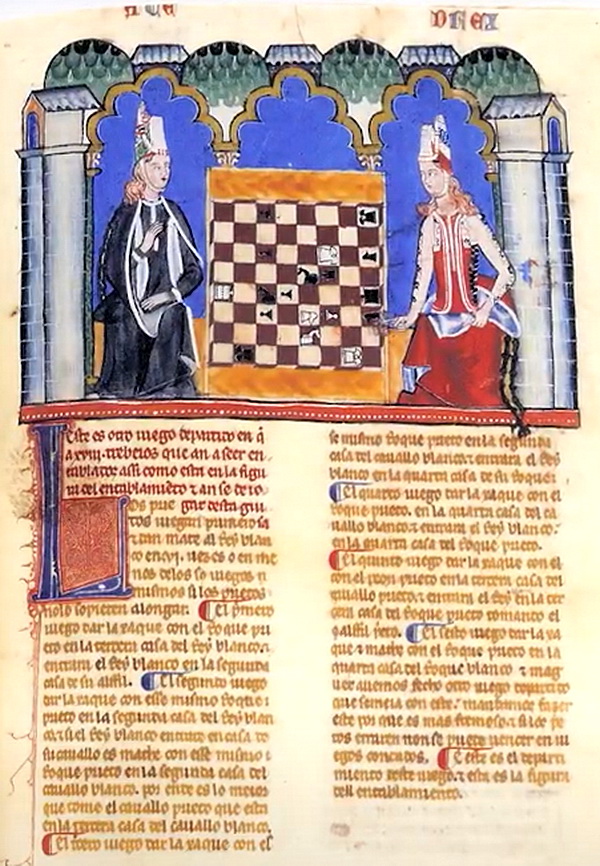 Este es otro iuego departido en q̃
a xviij. trebeios que an a seer en
tablados assi como esta en la figu
ra del entablamiento ⁊ an se de io
os pue gar desta gui
tos iuegan primero
⁊ dan mate al Rey blan
co en vj. uezes o en me
nos delos so iuegos
mismos si los prietos
nolo sopieren alongar. El primero
iuego dar la xaque con el Roque pri
eto en la tercera casa del Rey blanco.
⁊ entrara el Rey blanco en la segunda
casa de su alffil. El segundo iuego
dar la xaque con esse mismo Roque
prieto en la segunda casa del Rey blan
co. ⁊ si el Rey blanco entrare en casa de
su cauallo es mathe con esse mismo
Roque prieto en la segunda casa del
cauallo blanco. por ente es lo meior
que tome el cauallo prieto que esta
en la tercera casa del cauallo blanco.
El tercero iuego dar la xaque con el
se mismo Roque prieto en la segunda
casa del cauallo blanco. ⁊ entrara el Rey
blanco en la quarta casa de su Roque.
El quarto iuego dar la xaque con el
Roque prieto. en la quarta casa del ca
uallo blanco. ⁊ entrara el Rey blanco.
en la quarta casa del Roque prieto.
El quinto iuego dar la xaque con el
con el peon prieto en la tercera casa del
cauallo prieto. ⁊ entrara el Rey en la ter
cera casa del Roque prieto tomando el
alffil prieto. El sesto iuego dar la xa
que ⁊ mathe con el Roque prieto en la
quarta casa del Roque blanco ⁊ mag
uer auemos fecho otro iuego departido
que semeia con este. mandamos fazer
este por que es mas fremoso. ⁊ si los pr
etos erraren non se puede uencer en iu
egos contados. E este es el departi
miento deste iuego. ⁊ esta es la figura
dell entablamiento.